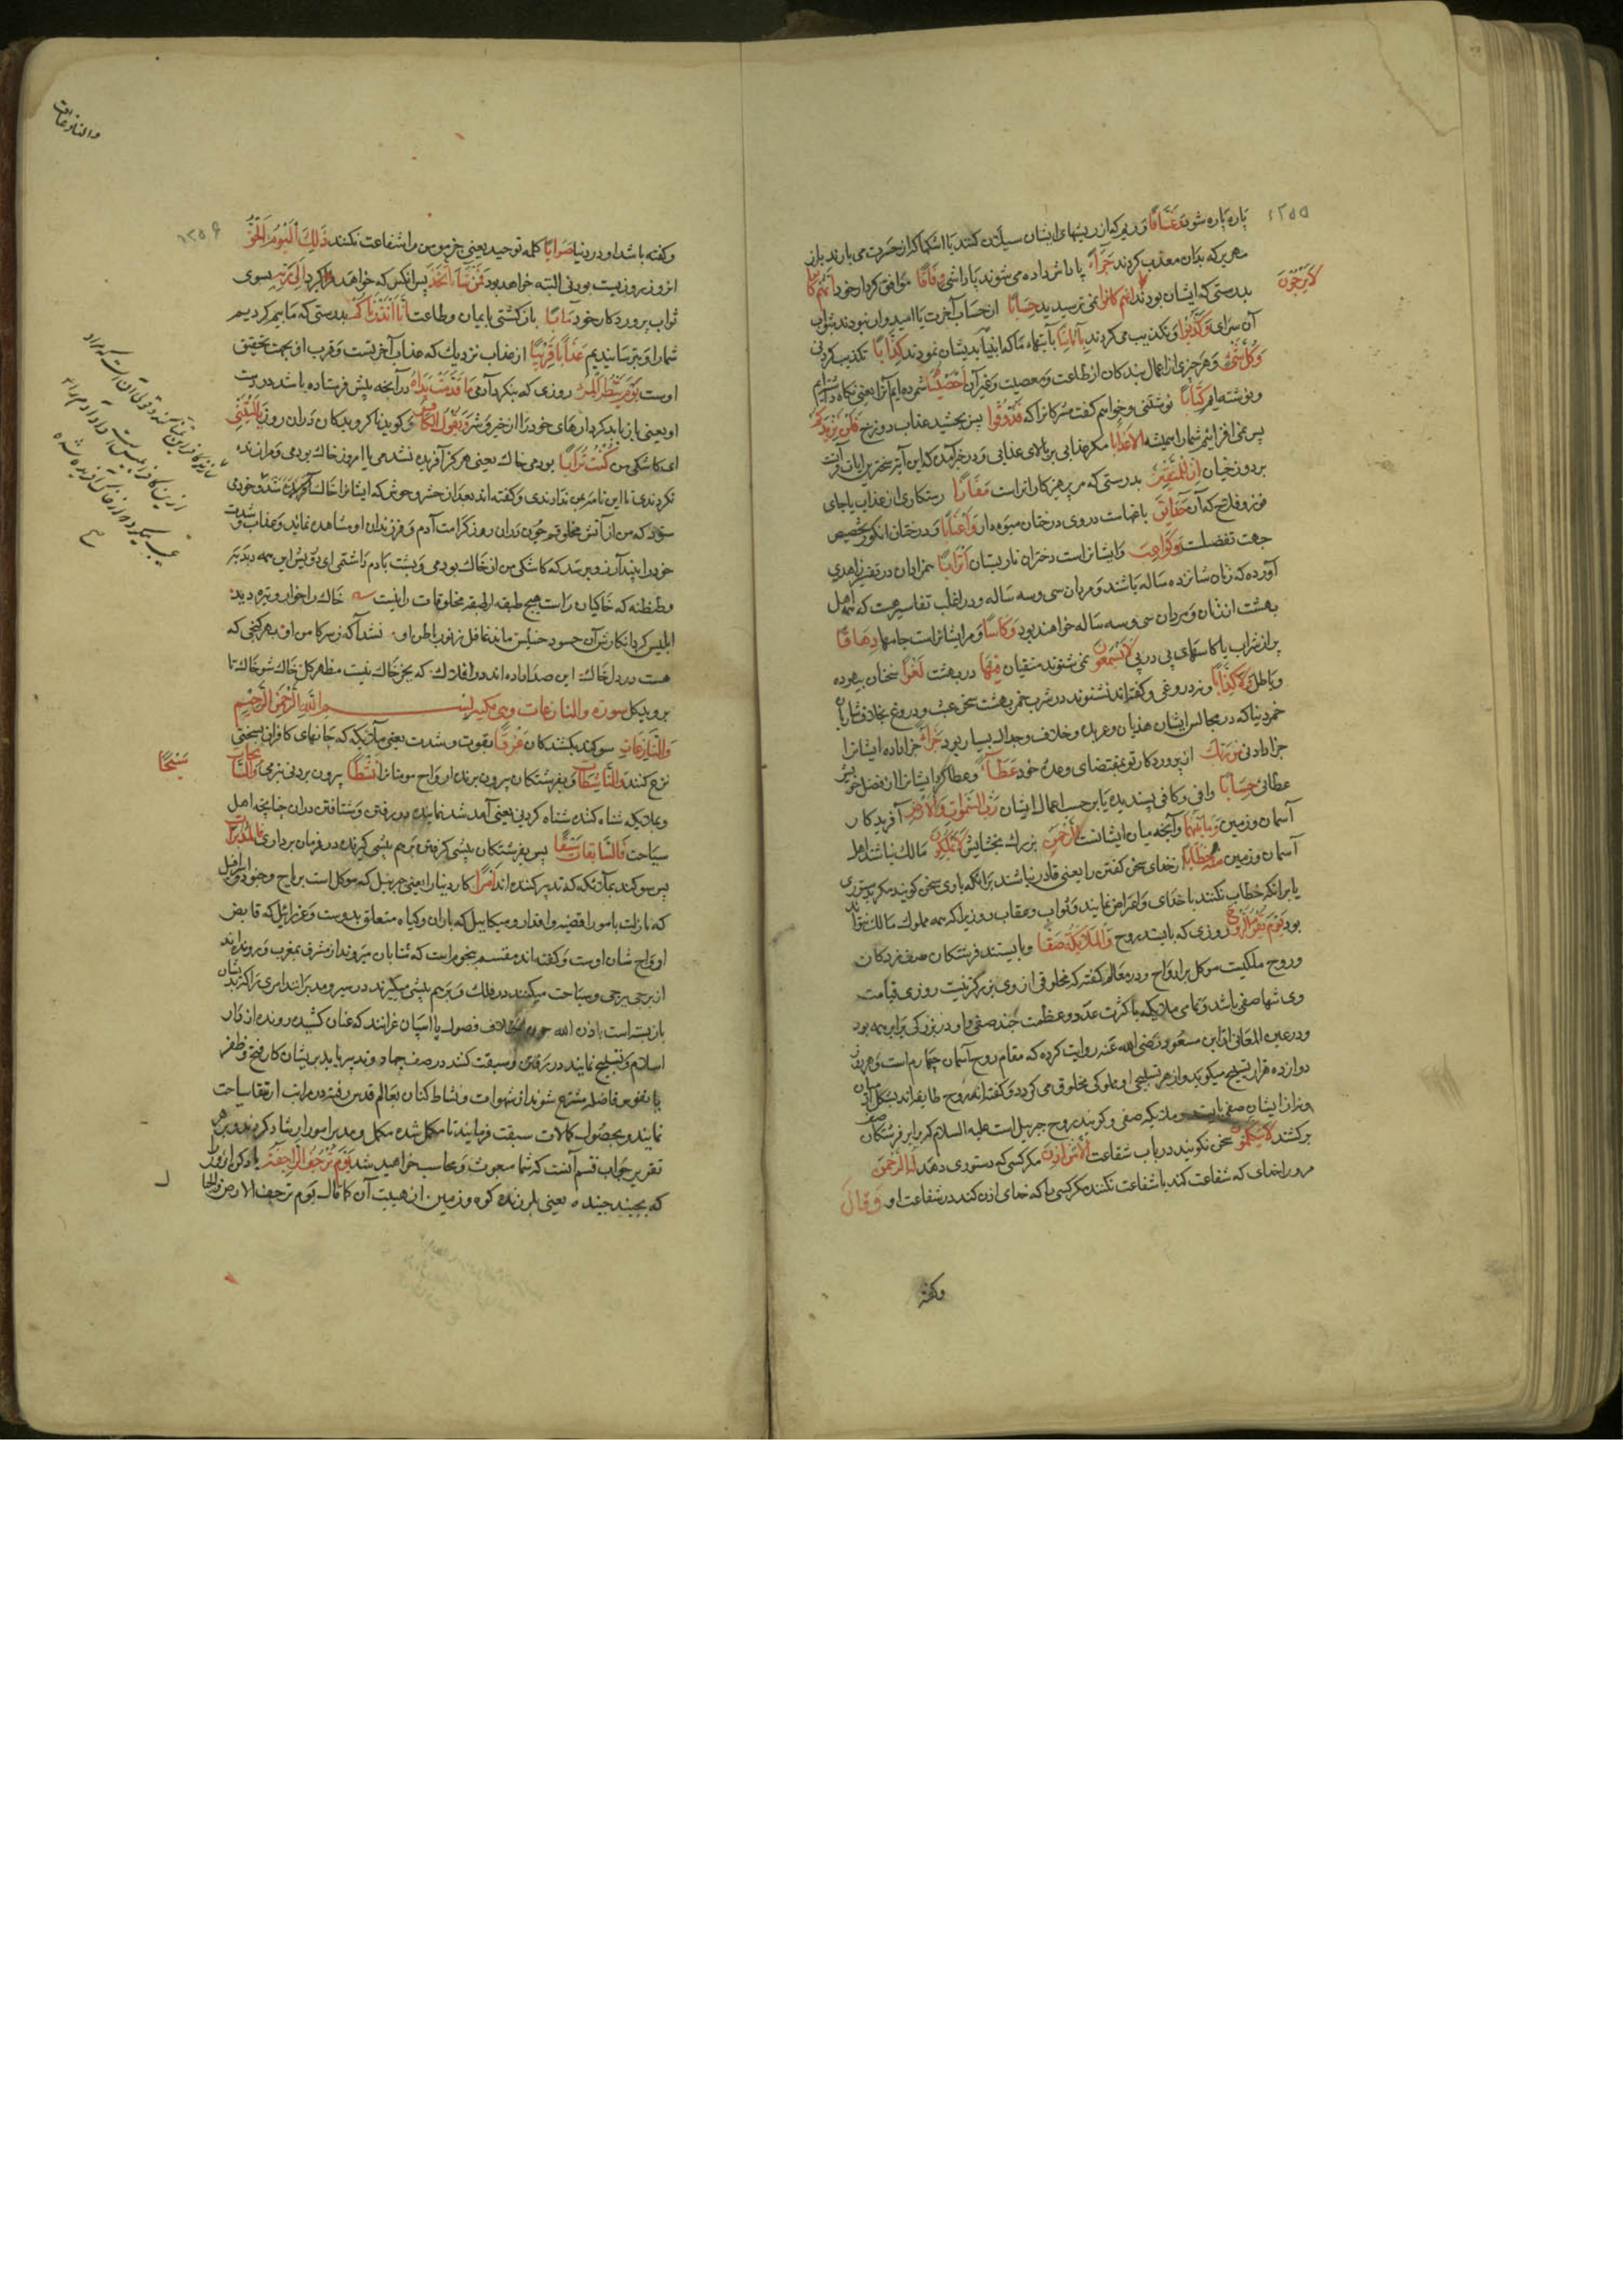 ۱۲۵۵
پاره پاره شود وَغَسَّاقًا و زیم که از ریشهای ایشان سیلان کند یا اشکها که از حسرت می بارند برابر
هر بر که بدان معذب کردند جَزَاءً پاداش داده می شوند پاداشی وِفَاقًا موافق کردار خود اِنَّهُمْ كَانُوا
لَا يَرْجُونَ
بدرستی که ایشان بودند نمی ترسیدید حِسَابًا از حساب آخرت یا امیدوار نبودند بثواب
آن سرای وَكَذَّبُوا و تکذیب می کردند بِآيَاتِنَا بآیتهاء ما که انبیا بدیشان نمودند كِذَّابًا تکذیب کردنی
وَكُلَّ شَيْءٍ و هر چیزی از اعمال بندکان از طاعت و معصیت و غیر آن اَحْصَيْنَاهُ شمرده ایم آنرا یعنی نکاه داشته ایم
و نوشته ایم كِتَابًا نوشتنی و خواهم گفت مشرکانرا که فَذُوقُوا پس بچشید عذاب دوزخ فَلَنْ نَزِيدَكُمْ
پس نمی افزائیم شمارا همیشه اِلَّا عَذَابًا مکر عذابی بر بالای عذابی و در خبر آمده که این آیت سخترین ایات قرآنست
بر دوزخیان اِنَّ لِلْمُتَّقِينَ بدرستی که مر پرهیزکارانراست مَفَازًا رستکاری از عذاب یا جای
فوز و فلاح که آن حَدَائِقَ باغهاست دروی درختان میوه دار وَاَعْنَابًا و درختان انکور تخصیص
جهت تفضلست وَكَوَاعِبَ و ایشانراست دختران نارپستان اَتْرَابًا همزادان در تفسیر زاهدی
آورده که زنان شانزده ساله باشند و مردان سی و سه ساله و در اغلب تفاسیر هست که همه اهل
بهشت از زنان و مردان سی و سه ساله خواهند بود وَكَاْسًا و مر ایشانراست جامها دِهَاقًا
پر از شراب یا کاسهای پی در پی لَا يَسْمَعُونَ نمی شنوند متقیان فِيهَا در بهشت لَغْوًا سخنان بیهوده
و باطل وَلَا كِذَّابًا و نه دروغی و کفته اند نشنوند در شرب خمر بهشت سخن عبث و دروغ بخلاف شاربان
خمر دنیا که در مجالس ایشان هذیان و عربده و خلاف و جدال بسیار بود جَزَاءً جزا داده ایشانرا
جزا دادنی مِنْ رَبِّكَ از پروردکار تو بمقتضای وعدهٔ خود عَطَاءً و عطا کرد ایشانرا از فضل خویش
عطائی حِسَابًا وافی و کافی پسندیده یا بر حسب اعمال ایشان رَبِّ السَّمٰوَاتِ وَالْاَرْضِ آفریدکار
آسمان و زمین وَمَا بَيْنَهُمَا و آنچه میان ایشانست اَلرَّحْمٰنِ بزرك بخشایش لَا يَمْلِكُونَ مالك نباشند اهل
آسمان و زمین مِنْهُ خِطَابًا از خدای سخن کفتن را یعنی قادر نباشند برانکه باوی سخن کویند مکر بدستوری
یا برانکه خطاب نکنند با خدای و اعتراض نمایند در ثواب و عقاب روزیرا که همه مملوك مالك نتواند
بود يَوْمَ يَقُومُ الرُّوحُ روزی که بایستد روح وَالْمَلَائِكَةُ صَفًّا و بایستند فرشتکان صف زدکان
و روح ملکیست موکل بر ارواح و در معالم کفته که مخلوقی از وی بزرکتر نیست روز قیامت
وی تنها صفی باشد و تمامی ملایکه با کثرت عدد و عظمت جند صفی و او در بزرکی برابر همه بود
و در عین المعانی از ابن مسعود رضی الله عنه روایت کرده که مقام روح آسمان چهارم است و هر روز
دوازده هزار تسبیح میکوید و از هر تسبیحی او ملوکی مخلوق می کردد و کفته اند روح طایفه اند بشکل آدمیان
و نزد ایشان صفی بایستند و ملایکه صفی و کویند روح جبریل است علیه السلام که برابر فرشتکان صف
برکشد لَا يَتَكَلَّمُونَ سخن نکویند در باب شفاعت اِلَّا مَنْ اَذِنَ مکر کسی که دستوری دهد لَهُ الرَّحْمٰنُ
مرورا خدای که شفاعت کند یا شفاعت نکنند مکر کسی را که خدای اذن کند در شفاعت او وَقَالَ
وکفته
والنازعات
۱۲۵۶
وکفته باشد او در دنیا صَوَابًا کلمه توحید یعنی جز مومن را شفاعت نکنند ذٰلِكَ الْيَوْمُ الْحَقُّ
انروز روزیست بودنی البته خواهد بود فَمَنْ شَاءَ اتَّخَذَ پس انکس که خواهد فرا کیرد اِلٰى رَبِّهِ بسوی
ثواب پروردکار خود مَاٰبًا بازکشتی بایمان و طاعت اِنَّا اَنْذَرْنَاكُمْ بدرستی که ما بیم کردیم
شمارا و بترسانیدیم عَذَابًا قَرِيبًا از عذاب نزدیك که عذاب آخرتست و قرب او بجهت تحقیق
اوست يَوْمَ يَنْظُرُ الْمَرْءُ روزی که بنکرد آدمی مَا قَدَّمَتْ يَدَاهُ در آنچه پیش فرستاده باشد در دست
او یعنی باز یابد کردارهای خود را از خیر و شر وَيَقُولُ الْكَافِرُ و کوید ناکرویدکان دران روز يَا لَيْتَنِي
ای کاشکی من كُنْتُ تُرَابًا بودمی خاك یعنی هرکز آفریده نشدمی یا امروز خاك بودمی و مرا زنده
نکردندی تا این نامه بمن ندادندی و کفته اند بعد از حشر وحوش که ایشانرا خاك
سوزد که من از آتش مخلوقم چون دران روز کرامت آدم و فرزندان او مشاهده نماید و عذاب و شدت
خود را بیند آرزو برد که کاشکی من از خاك بودمی و نسبت بادم داشتمی ای درویش این همه دبدبه
و طنطنه که خاکیان راست هیچ طبقه از طبقه مخلوقات را نیست خاك را خوار و تیره دید
ابلیس کرد انکارش آن حسود خسیس ماند غافل ز نور باطن او نشد آکه ز سر کامن او هر کنجی که
هست در دل خاك این صدا داده اند در افلاك که بجز خاك نیست مظهر کل خاك شو خاك تا
بروید کل سوره والنازعات وهی مکیه بسم الله الرحمن الرحیم
وَالنَّازِعَاتِ سوکند بکشندکان غَرْقًا بقوت و شدت یعنی ملائکه که جانهای کافران بسختی
نزع کنند وَالنَّاشِطَاتِ و بفرشتکان بیرون برنده ارواح مومنانرا نَشْطًا بیرون بردنی بنرمی وَالسَّابِحَاتِ
سَبْحًا
و بملایکه شناه کننده شناه کردنی یعنی آمد شد نماینده در رفتن و شتافتن دران چنانچه اهل
سیاحت فَالسَّابِقَاتِ سَبْقًا پس بفرشتکان پیشی کرفتن بر هم پیشی کیرنده در فرمان برداری فَالْمُدَبِّرَاتِ
پس سوکند بملائکه که تدبیر کننده اند اَمْرًا کار دنیا را یعنی جبریل که موکل است بریاح و جنود و اسرافیل
که نازلست بامور اقضیه و اقدار و میکاییل که باران و کیاه متعلق بدوست و عزرائیل که قابض
ارواح شان اوست و کفته اند مقسم به نجوم است که شتابان میروند از مشرق بمغرب و برونده اند
از برجی ببرجی و سباحت میکنند در فلك و بر هم پیشی میکیرند در سیر و مدبرانند امری را که بدیشان
بازبسته است باذن الله چون اختلاف فصول یا اسپان غزانند که عنان کشیده رونده از دار
اسلام و تسبیح نمایند در رفتن و سبقت کنند در صف جهاد و تدبیر یابد بریشان کار فتح و ظفر
یا نفوس فاضله منتزع شوند از شهوات و نشاط کنان بعالم قدس رفته در مراتب ارتقا سیاحت
نمایند و بحصول کمالات سبقت فرمایند تا مکمل شده مکمل و مدبر امور ارشاد کردند و بر هر
تقدیر جواب قسم آنست که شما مبعوث و محاسب خواهید شد يَوْمَ تَرْجُفُ الرَّاجِفَةُ یاد کن ازروز
که بجنبد جنبنده یعنی بلرزنده کوه و زمین از هیبت آن کما قال یوم ترجف الارض والجبال